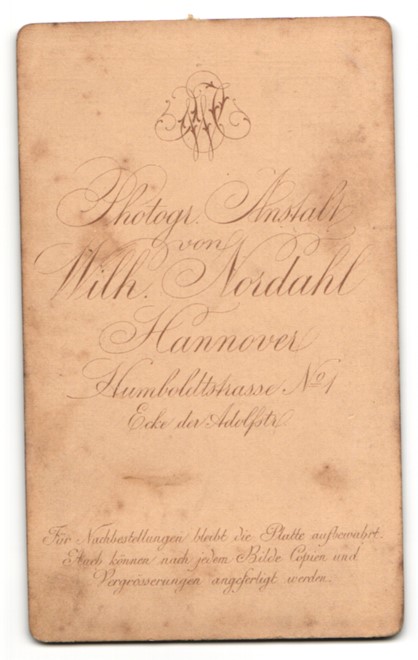 Photogr. Anstalt
von
Wilh. Nordahl
Hannover
Humboldtstrasse No 1
Ecke der Adolfstr.
För Nachbestellungen bleibt die Platte aufbewahrt.
Etach können nach jedem Bilde Copien und
Vergrösserungen angefertigt werden.